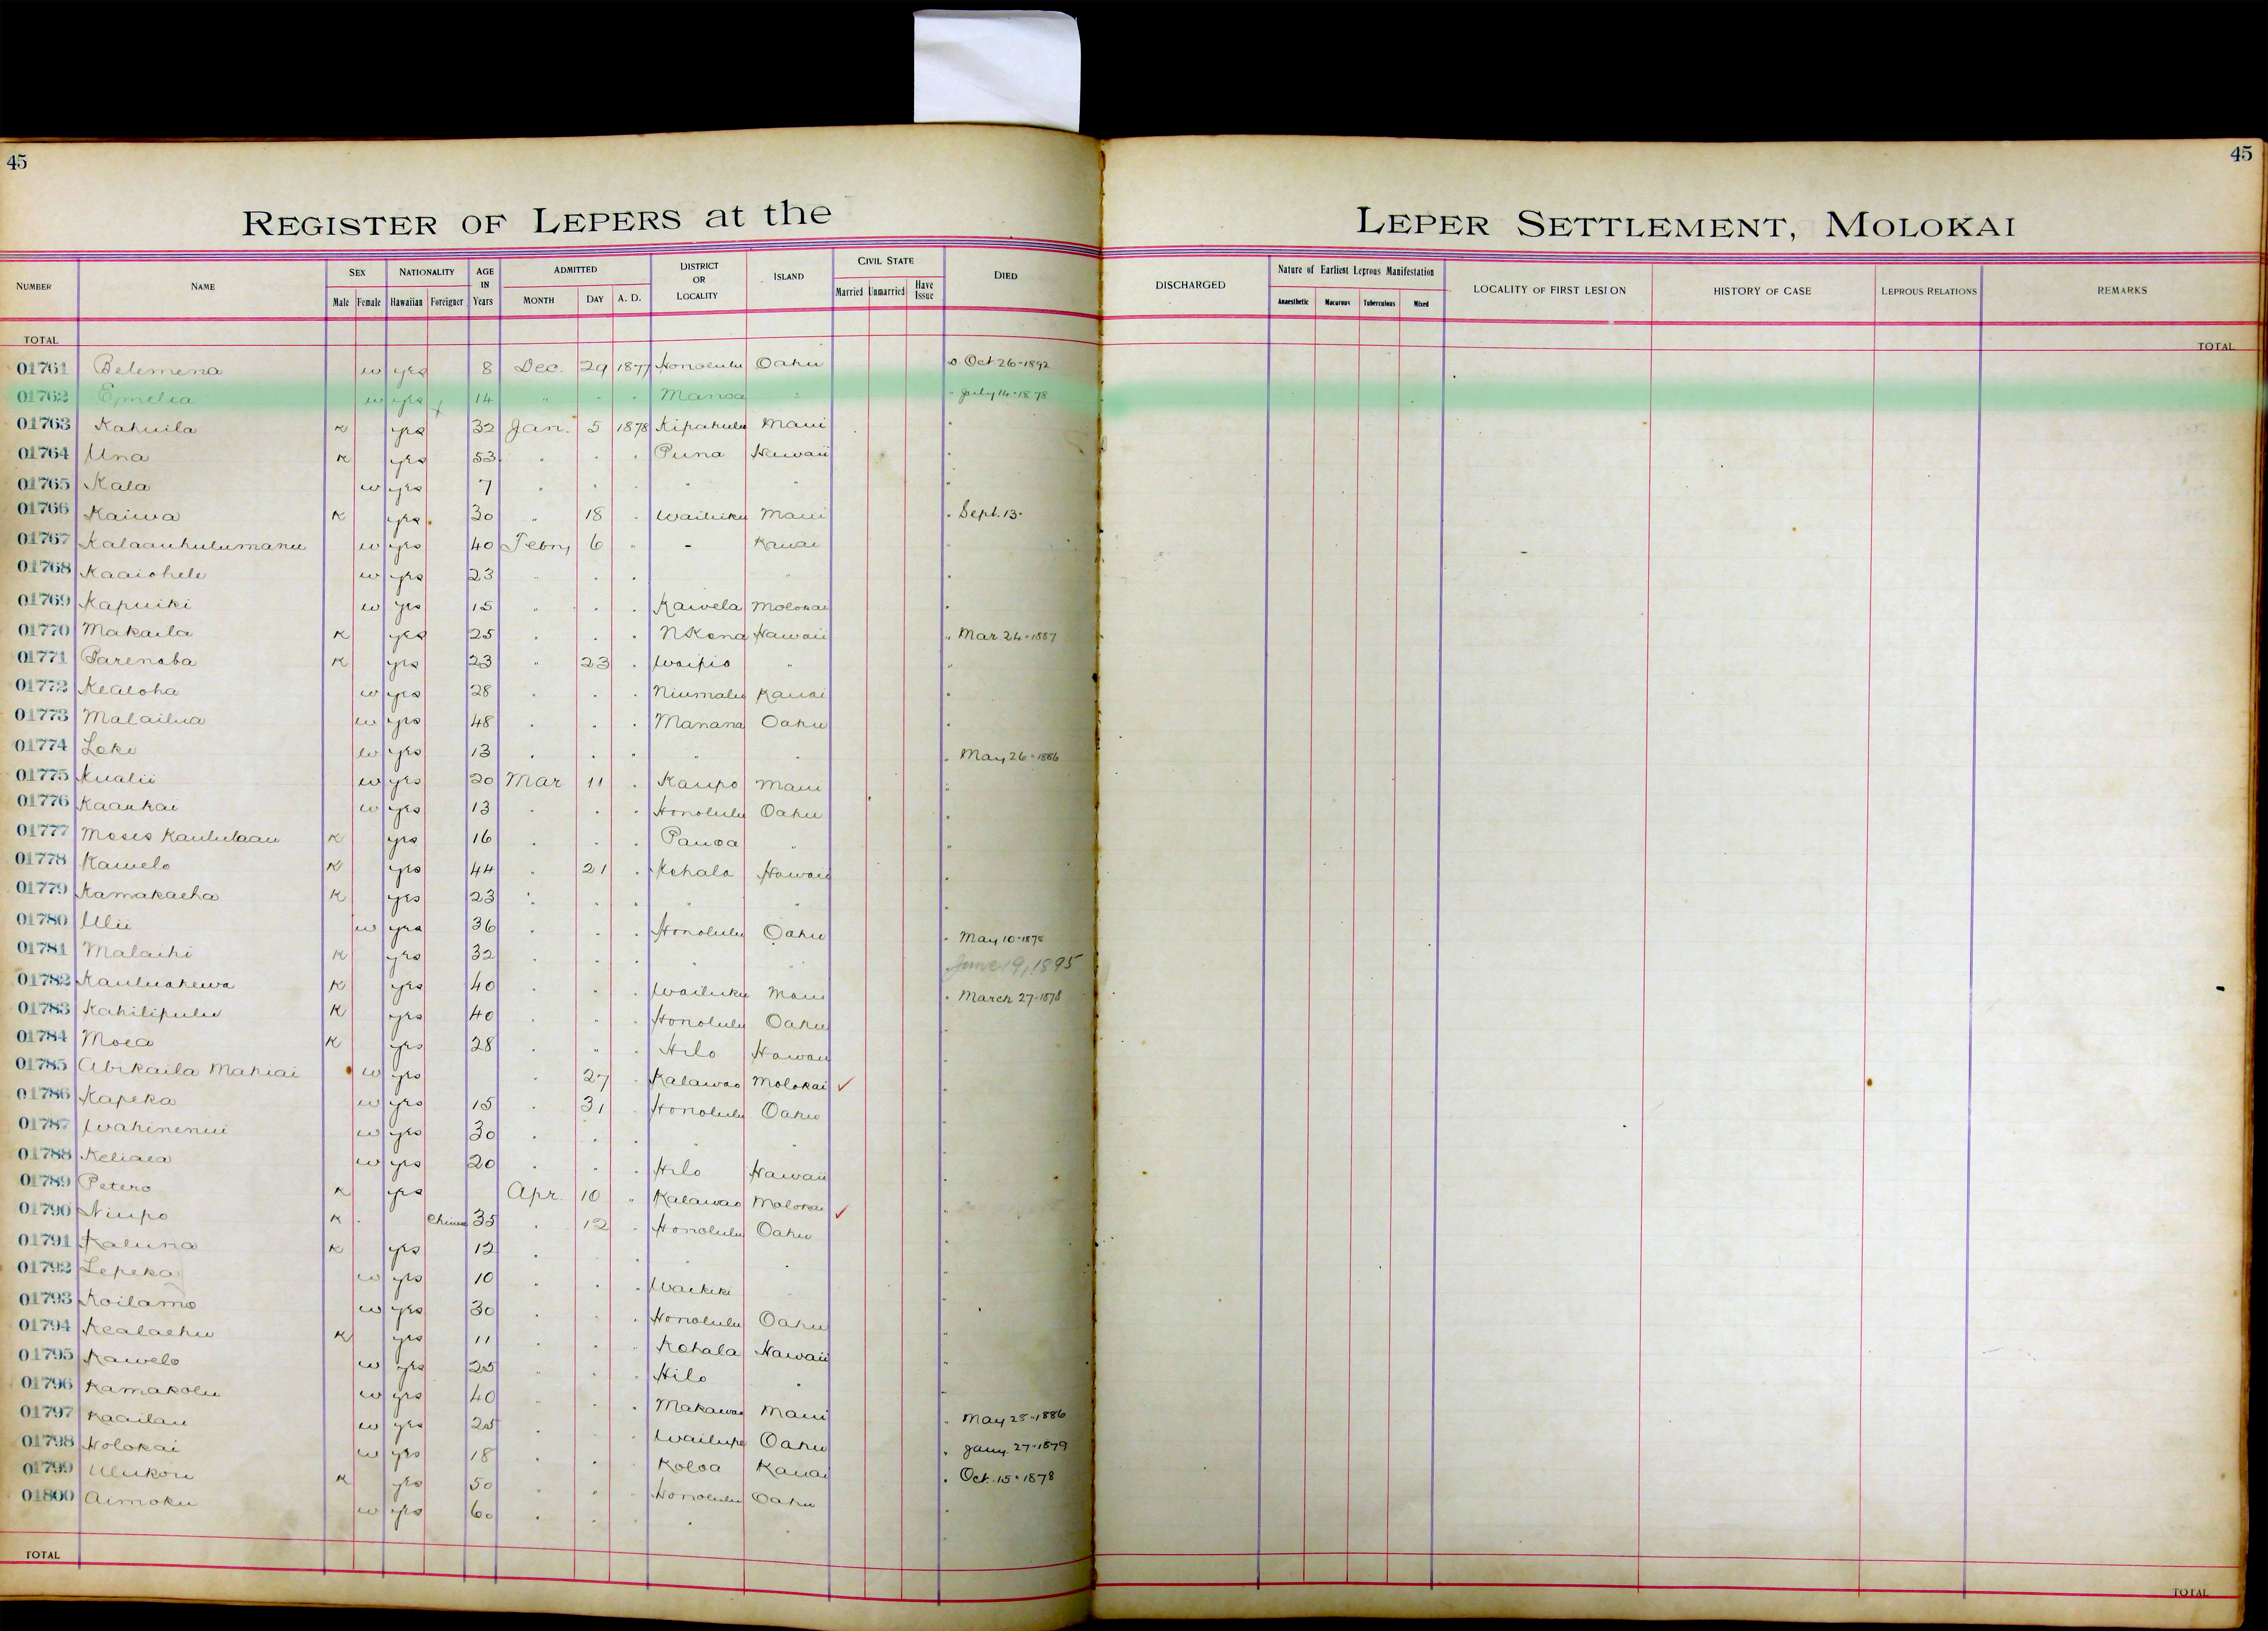 45
45
REGISTER OF LEPERS at the
LEPER SETTLEMENT, MOLOKAI
NUMBER NAME SEX NATIONALITY AGE IN Years ADMITTED DISTRICT OR LOCALITY ISLAND CIVIL STATE DIED
Male Female Hawaiian Foreigner MONTH DAY A. D. Married Unmarried Have Issue
DISCHARGED Nature of Earliest Leprous Manifestation LOCALITY OF FIRST LESION HISTORY OF CASE LEPROUS RELATIONS REMARKS
Anaesthetic Macurous Tuberculous Mixed
TOTAL
TOTAL
01761 Belemena w yes 8 Dec. 29 1877 Honolulu Oahu Oct 26-1892
01762 Emelia w yes 14 " " " Manoa " " July 14-1878
01763 Kahuila K yes 32 Jan. 5 1878 Kipahulu Maui "
01764 Una K yes 53 " " " Puna Hawaii "
01765 Kala w yes 7 " " " " " "
01766 Kaiwa K yes 30 " 18 " Wailuku Maui " Sept. 13-
01767 Kalaauhulumanu w yes 40 Febry 6 " - Kauai "
01768 Kaaiohele w yes 23 " " " " "
01769 Kapuiki w yes 15 " " " Kawela Molokai "
01770 Makaila K yes 25 " " " N Kona Hawaii " Mar 24-1887
01771 Parenaba K yes 23 " 23 " Waipio " "
01772 Kealoha w yes 28 " " " Niumalu Kauai "
01773 Malailua w yes 48 " " " Manana Oahu "
01774 Loke w yes 13 " " " " " " May 26-1886
01775 Kualii w yes 20 Mar 11 " Kaupo Maui "
01776 Kaaukai w yes 13 " " " Honolulu Oahu "
01777 Moses Kaululaau K yes 16 " " " Pauoa " "
01778 Kawelo K yes 44 " 21 " Kohala Hawaii "
01779 Kamakaeha K yes 23 " " " " " "
01780 Ulii w yes 36 " " " Honolulu Oahu " May 10-1878
01781 Malaihi K yes 32 " " " " " June 19, 1895
01782 Kauluahewa K yes 40 " " " Wailuku Maui " March 27-1878
01783 Kahilipulu K yes 40 " " " Honolulu Oahu "
01784 Moea K yes 28 " " " Hilo Hawaii "
01785 Abikaila Mahiai w yes " 27 " Kalawao Molokai ✓ "
01786 Kapeka w yes 15 " 31 " Honolulu Oahu "
01787 Wahinenui w yes 30 " " " " " "
01788 Keliaea w yes 20 " " " Hilo Hawaii "
01789 Petero K yes Apr. 10 " Kalawao Molokai ✓ "
01790 Niupo K Chinese 35 " 12 " Honolulu Oahu "
01791 Kaluna K yes 12 " " " " " "
01792 Lepeka w yes 10 " " " Waikiki " "
01793 Koilamo w yes 30 " " " Honolulu Oahu "
01794 Kealaehu K yes 11 " " " Kohala Hawaii "
01795 Kawelo w yes 25 " " " Hilo " "
01796 Kamakolu w yes 40 " " " Makawao Maui " May 25-1886
01797 Kaailau w yes 25 " " " Wailupe Oahu " Jany. 27-1879
01798 Holokai w yes 18 " " " Koloa Kauai " Oct. 15-1878
01799 Ulukou K yes 50 " " " Honolulu Oahu "
01800 Aimoku w yes 60 " " " " " "
TOTAL
TOTAL